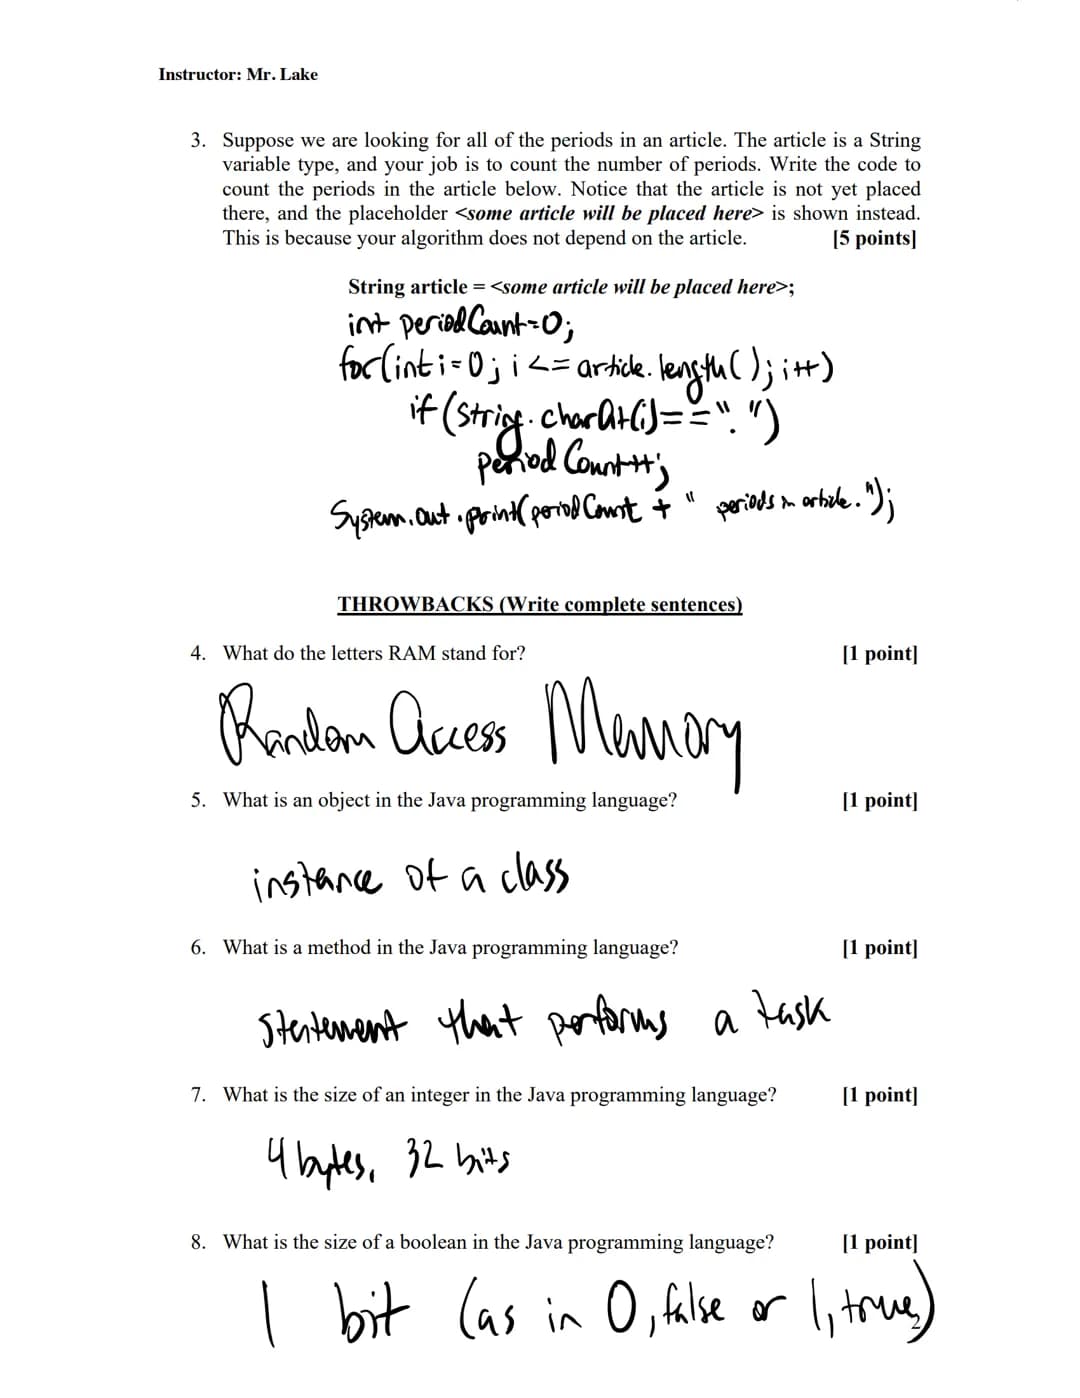 Instructor: Mr. Lake
3. Suppose we are looking for all of the periods in an article. The article is a String
variable type, and your job is to count the number of periods. Write the code to
count the periods in the article below. Notice that the article is not yet placed
there, and the placeholder <some article will be placed here> is shown instead.
This is because your algorithm does not depend on the article. [5 points]
String article = <some article will be placed here>;
int periodCount=0;
for(int i=0; i<=article.length(); i++)
if (string.charAt(i)==".")
periodCount++;
System.out.print(periodCount + " periods in article.");
THROWBACKS (Write complete sentences)
4. What do the letters RAM stand for? [1 point]
Random Access Memory
5. What is an object in the Java programming language? [1 point]
instance of a class
6. What is a method in the Java programming language? [1 point]
statement that performs a task
7. What is the size of an integer in the Java programming language? [1 point]
4 bytes, 32 bits
8. What is the size of a boolean in the Java programming language? [1 point]
1 bit (as in 0, false or 1, true)
2